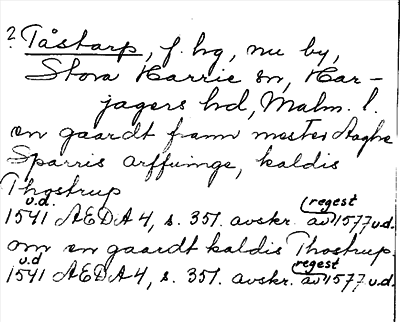 ? Tåstarp, f. hg, nu by,
Stora Harrie sn, Har-
jagers hd, Malm. l.
en gaardt framn mester Aaghe
Sparris arffuinge, kaldis
Thostrup
u.d. (regest
1541 AEDA 4, s. 351. avskr. av 1577 u.d.
om en gaardt kaldis Thostrup.
u.d regest
1541 AEDA 4, s. 351. avskr. av 1577 u.d.